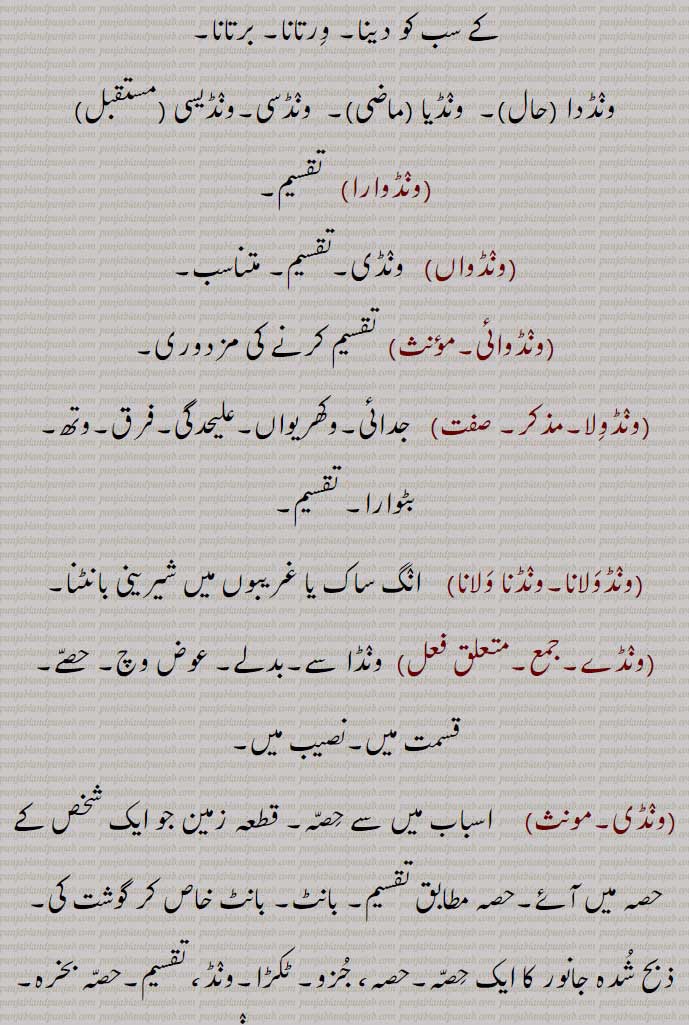 کے سب کو دینا۔ وِرتانا۔ برتانا۔
ونٛڈدا (حال)۔ ونٛڈیا (ماضی)۔ ونٛڈسی۔ونٛڈیسی (مستقبل)
(ونٛڈوارا) تقسیم۔
(ونٛڈواں) ونٛڈی۔تقسیم۔ متناسب۔
(ونٛڈوائی۔مؤنث) تقسیم کرنے کی مزدوری۔
(ونٛڈوِلا۔مذکر۔ صفت) جدائی۔وکھریواں۔علیحدگی۔فرق۔وتھ۔
بٹوارا۔ تقسیم۔
(ونٛڈوَلانا۔ونٛڈنا وَلانا) انٛگ ساک یا غریبوں میں شیرینی بانٹنا۔
(ونٛڈے۔جمع۔متعلق فعل) ونٛڈا سے۔بدلے۔ عوض وچ۔ حصّے۔
قسمت میں۔نصیب میں۔
(ونٛڈی۔مونث) اسباب میں سے حِصّہ۔ قطعہ زمین جو ایک شخص کے
حصہ میں آئے۔حصہ مطابق تقسیم۔ بانٹ۔ بانٹ خاص کر گوشت کی۔
ذبح شُدہ جانور کا ایک حِصّہ۔حصہ، جُزو۔ ٹکڑا۔ونٛڈ، تقسیم۔حصّہ بخرہ۔